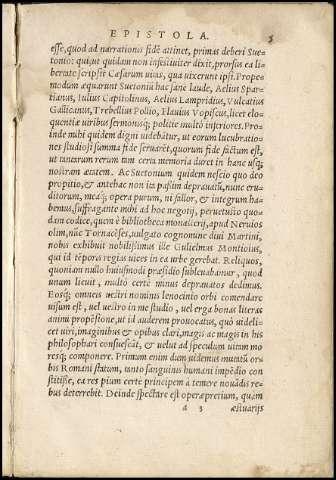 EPISTOLA. 3
esse, quod ad narrationis fidē attinet, primas deberi Sue-
tonio: qui, ut quidam non insciiuiter dixit, prorsus ea li-
bertate scripsit Cæsarum uitas, qua uixerunt ipsi. Prope-
modum æquarunt Suetoniū hac sane laude, Aelius Spar-
tianus, Iulius Capitolinus, Aelius Lampridius, Vulcatius
Gallicanus, Trebellius Pollio, Flauius Vopiscus, licet elo-
quentiæ uiribus sermonisq; politie multo inferiores. Pro-
inde mihi quidem digni uidebātur, ut eorum lucubratio-
nes studiosi summa fide seruarēt, quorum fide factum est,
ut tantarum rerum tam certa memoria duret in hanc usq;
nostram ætatem. Ac Suetonium quidem nescio quo deo
propitio, & antehac non ita passim deprauatū, nunc eru-
ditorum, meaq; opera purum, ni fallor, & integrum ha-
bemus, suffragante mihi ad hoc negotij, peruetusto quo-
dam codice, quem è bibliotheca monasterij, apud Neruios
olim, nūc Tornacēses, uulgato cognomine diui Martini,
nobis exhibuit nobilissimus ille Gulielmus Montioius,
qui id tēporis regias uices in ea urbe gerebat. Reliquos,
quoniam nullo huiusmodi præsidio subleuabamur, quod
unum licuit, multo certè minus deprauatos dedimus.
Eosq; omneis uestri nominis lenocinio orbi comendare
uisum est, uel uestro in me studio, uel erga bonas literas
animi propēsione, ut id auderem prouocatus, quò uideli-
cet uiri, imaginibus & opibus clari, magis ac magis in his
philosophari consuescāt, & uelut ad speculum uitam mo
resq; componere. Primum enim dum uidemus mutatū or
bis Romani statum, tanto sanguinis humani impēdio con
stitisse, ea res pium certe principem à temere nouādis re-
bus deterrebit. Deinde spectare est operæpretium, quam
a 3 æstuarijs